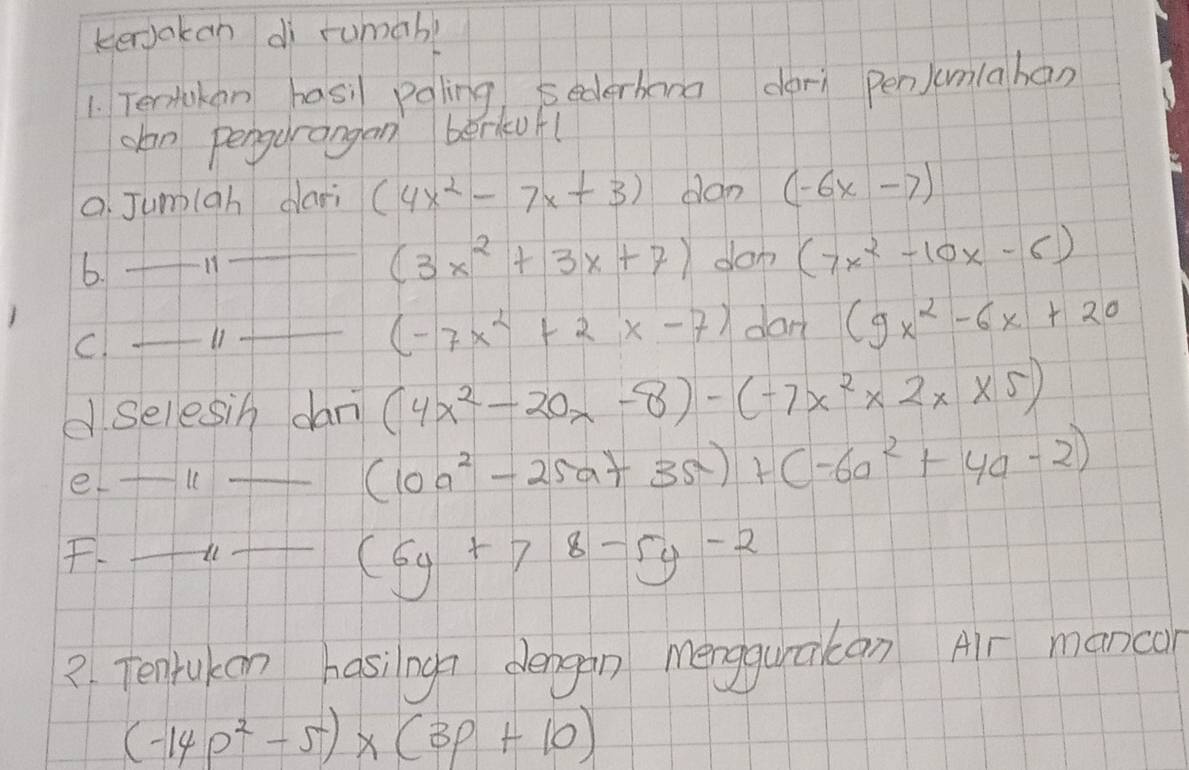 Kerjakan di rumah!
1. Tentukan hasil paling sederhana dari penjumlahan
dan pengurangan berikut!
a. Jumlah dari (4x² - 7x + 3) dan (-6x - 7)
b. —〃— (3x² + 3x + 7) dan (7x² - 10x - 6)
c. —〃— (-7x² + 2x - 7) dan (9x² - 6x + 20
d. Selesih dari (4x² - 20x - 8) - (-7x² x 2x x 5)
e. —〃— (10a² - 25a + 35) + (-6a² + 4a - 2)
F. —〃— (6y + 7 8 - 5y - 2
2. Tentukan hasilnya dengan menggunakan Air mancur
(-14p² - 5) x (3p + 10)